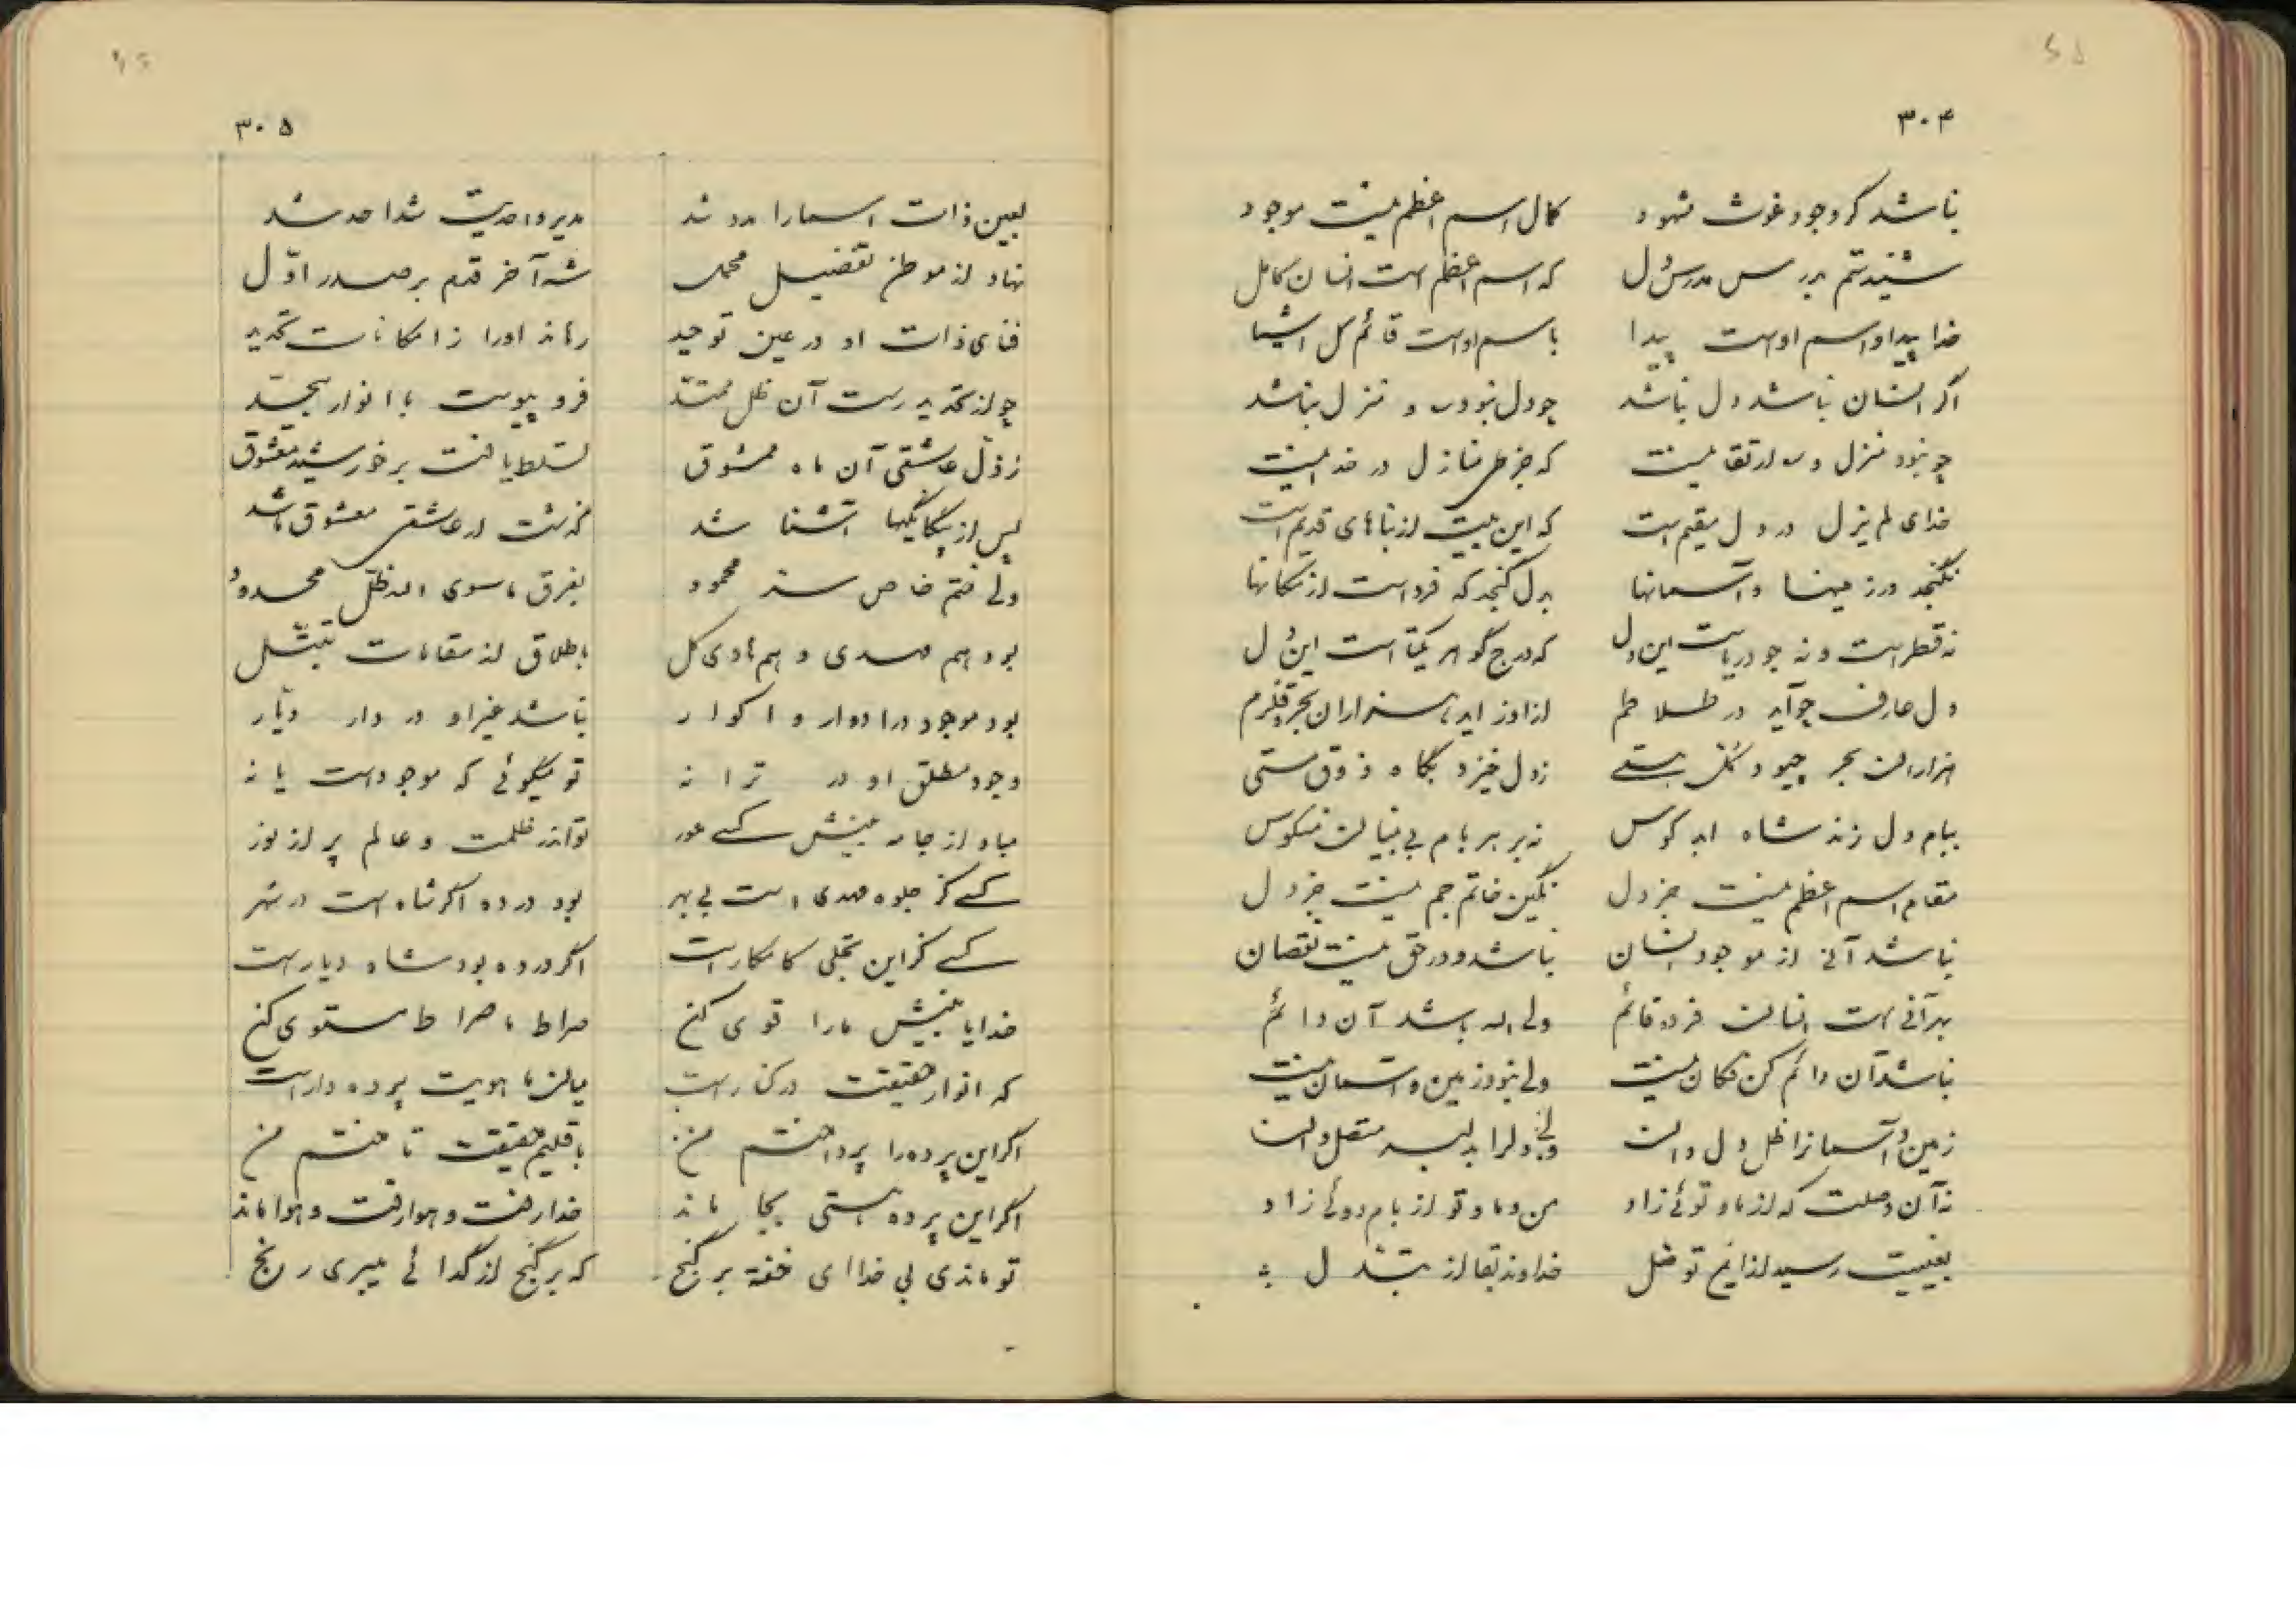 ۳۰۴
نباشد گر وجود غوث مشهود کمال اسم اعظم نیست موجود
شنیدستم بدرس مدرس دل که اسم اعظم است انسان کامل
خدا پیدا و اسم اوست پیدا باسم اوست قائم کل اشیا
اگر انسان نباشد دل نباشد چو دل نبود در و منزل نباشد
چو نبود منزل و ارتقا نیست که جز طی منازل در خدا نیست
خدای لم یزل در دل مقیم است که این بیت از بناهای قدیم است
نگنجد در زمینها و آسمانها بدل گنجد که فرد است از مکانها
نه قطره است و نه جو دریاست این دل که درج گوهر یکتاست این دل
دل عارف چو آید در تلاطم از او زاید هزاران بحر قلزم
هزاران بحر چبود کل هستی ز دل خیزد بگاه ذوق مستی
ببام دل زند شاه ابد کوس نه بر هر بام بی بنیان منکوس
مقام اسم اعظم نیست جز دل نگین خاتم جم نیست جز دل
نباشد آنی از موجود انسان نباشد و در حق نیست نقصان
بهر آنی است انسان فرد قائم ولی اله باشد آن دائم
نباشد آن دائم کن فکان نیست ولی نبود زمین و آسمان نیست
زمین و آسمانرا ظل دل دان ولی دلرا بدلبر متصل دان
نه آن وصلت که از ما و توئی زاد من و ما و تو از بام دوئی زاد
بغیبت رسید از این توغل خداوند بقا از تبدل
۳۰۵
بعین ذات اسما را مدد شد مدیر واحدیت شد احد شد
نهاد از موطن تفصیل مجمل شه آخر قدم بر صدر اول
فنای ذات او در عین توحید رهاند او را ز امکانات تحدید
چو از تحدید رست آن ظل ممتد فرو پیوست با انوار بیحد
ز ذل عاشقی آن ماه ممشوق تسلط یافت بر خورشید معشوق
پس از بیگانگیها آشنا شد گذشت از عاشقی معشوق ما شد
ولی ختم خاص سر محمود بفرق ما سوی اله ظل محدود
بود هم مهدی و هم هادی کل باطلاق از مقامات تبتل
بود موجود در ادوار و اکوار نباشد غیر او در دار دیار
وجود مطلق او در ترانه تو میگوئی که موجود است یا نه
مباد از جامه بینش کسی عور تو اندر ظلمت و عالم پر از نور
کسی کز جلوه مهدی است بی بهر بود در ده اگر شاه است در شهر
کسی کز این تجلی کامکار است اگر در ده بود شاه دیار است
خدایا بینش ما را قوی کن صراط ما صراط مستوی کن
که انوار حقیقت در کنار است میان ما هویت پرده دار است
اگر این پرده را پرداختم من باقلیم حقیقت تاختم من
اگر این پرده هستی بجا ماند خدا رفت و هوا رفت و هوا ماند
تو ماندی بی خدا ای خفته بر گنج که بر گنج از گدائی میبری رنج